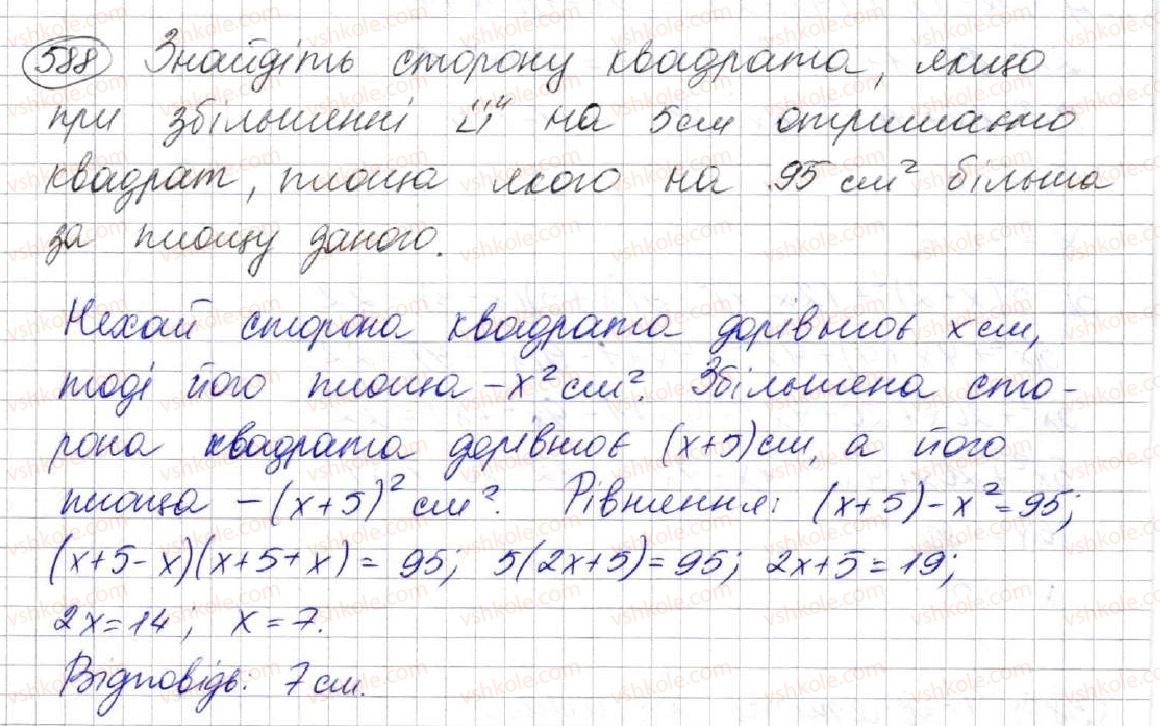 588 Знайдіть сторону квадрата, якщо
при збільшенні її на 5 см отримаємо
квадрат, площа якого на 95 см² більша
за площу даного.
Нехай сторона квадрата дорівнює x см,
тоді його площа – x² см². Збільшена сто-
рона квадрата дорівнює (x+5) см, а його
площа – (x+5)² см². Рівняння: (x+5)-x²=95;
(x+5-x)(x+5+x)=95; 5(2x+5)=95; 2x+5=19;
2x=14; x=7.
Відповідь: 7 см.